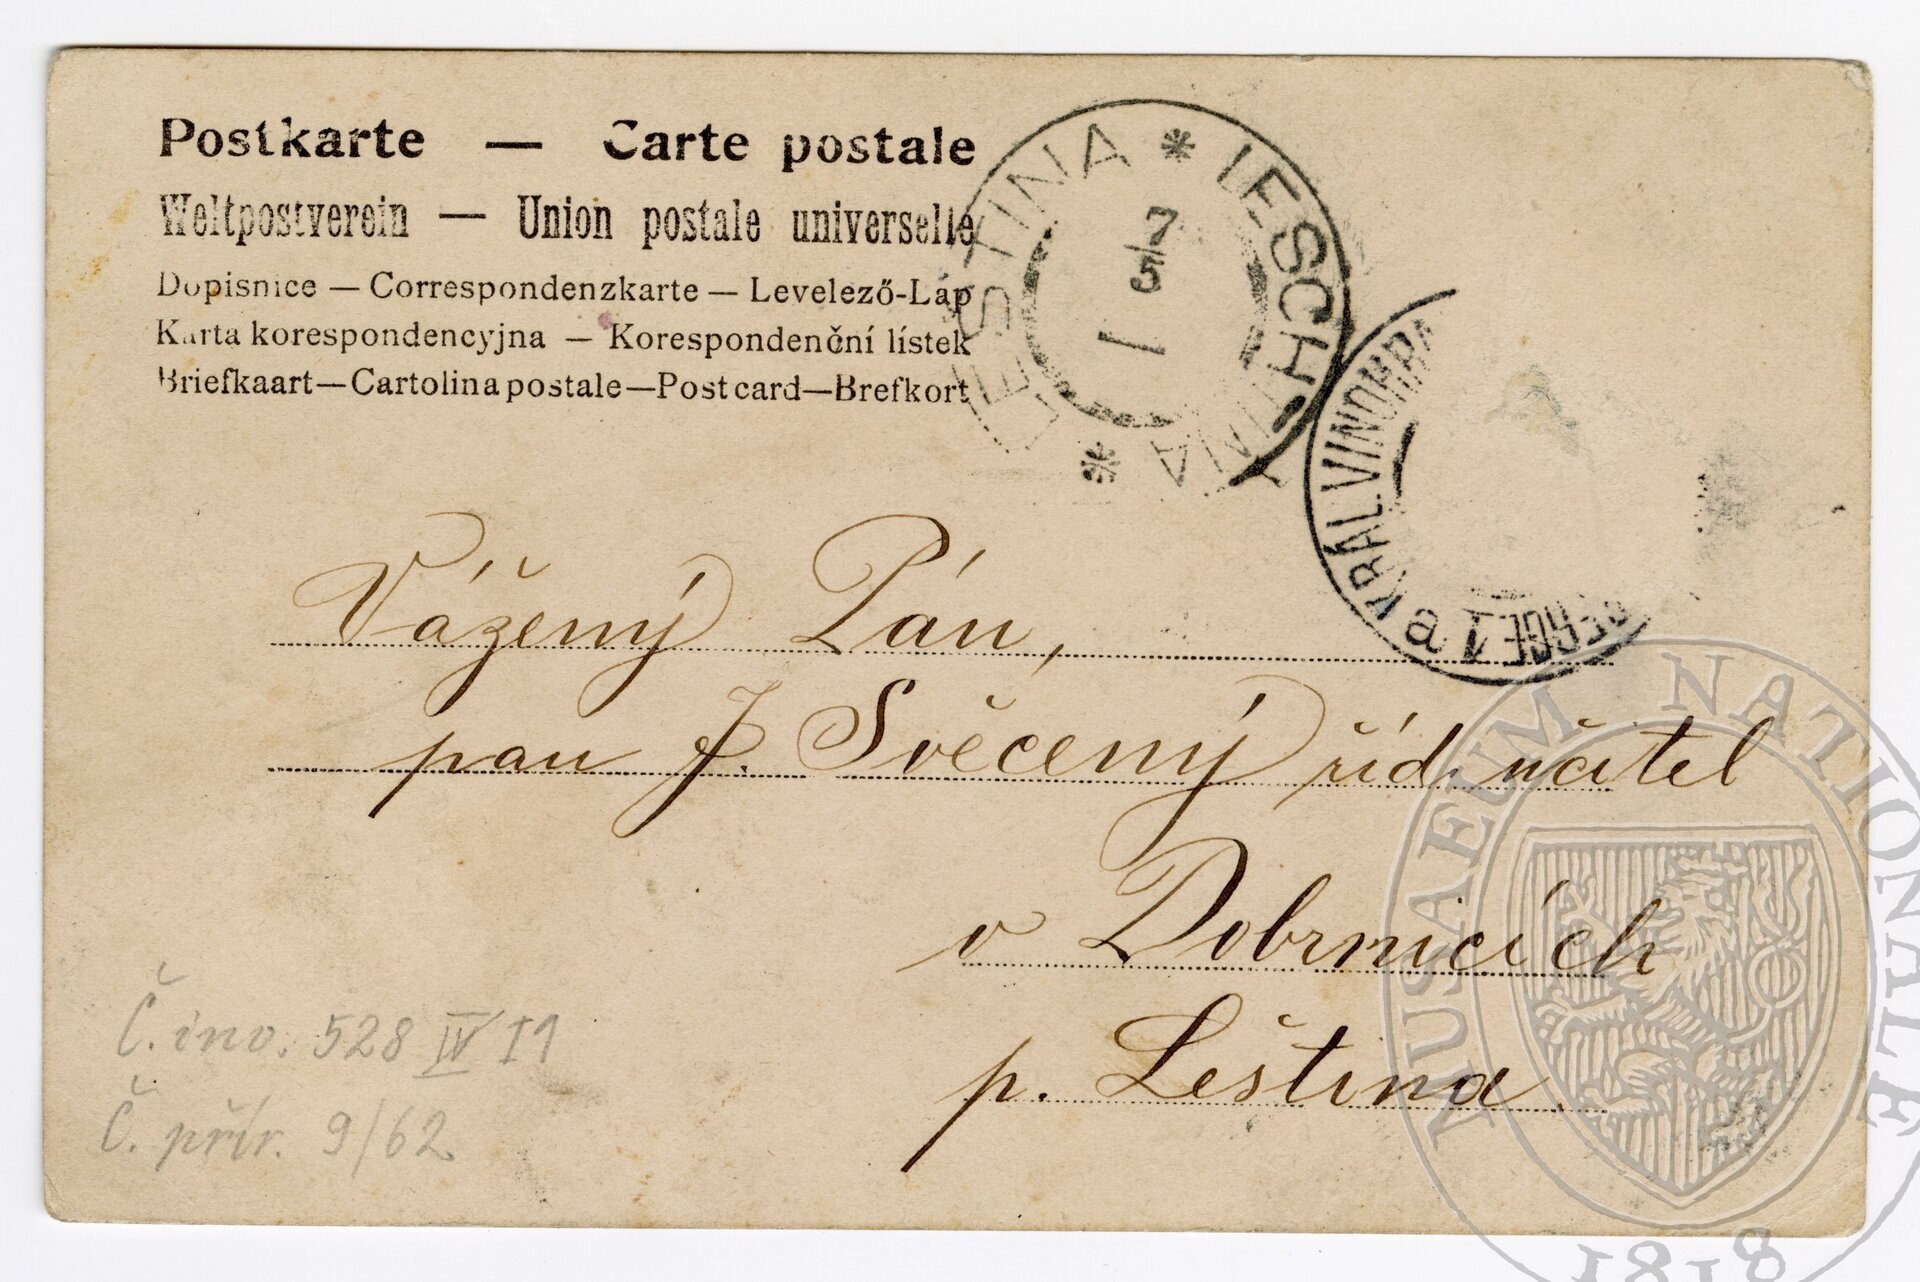 Postkarte — Carte postale
Weltpostverein — Union postale universelle
Dopisnice — Correspondenzkarte — Levelező-Láp
Karta korespondencyjna — Korespondenční lístek
Briefkaart—Cartolina postale—Post card—Brefkort
LEŠTINA * LESCHTINA *
7/5
KRÁL. VINOHRA
BERGE 1 a
Vážený Pán,
pan J. Svěcený říd. učitel
v Dobrnicích
p. Leština.
Č. inv. 528 IV I1
Č. přír. 9/62
MUSAEUM NATIONALE
1818